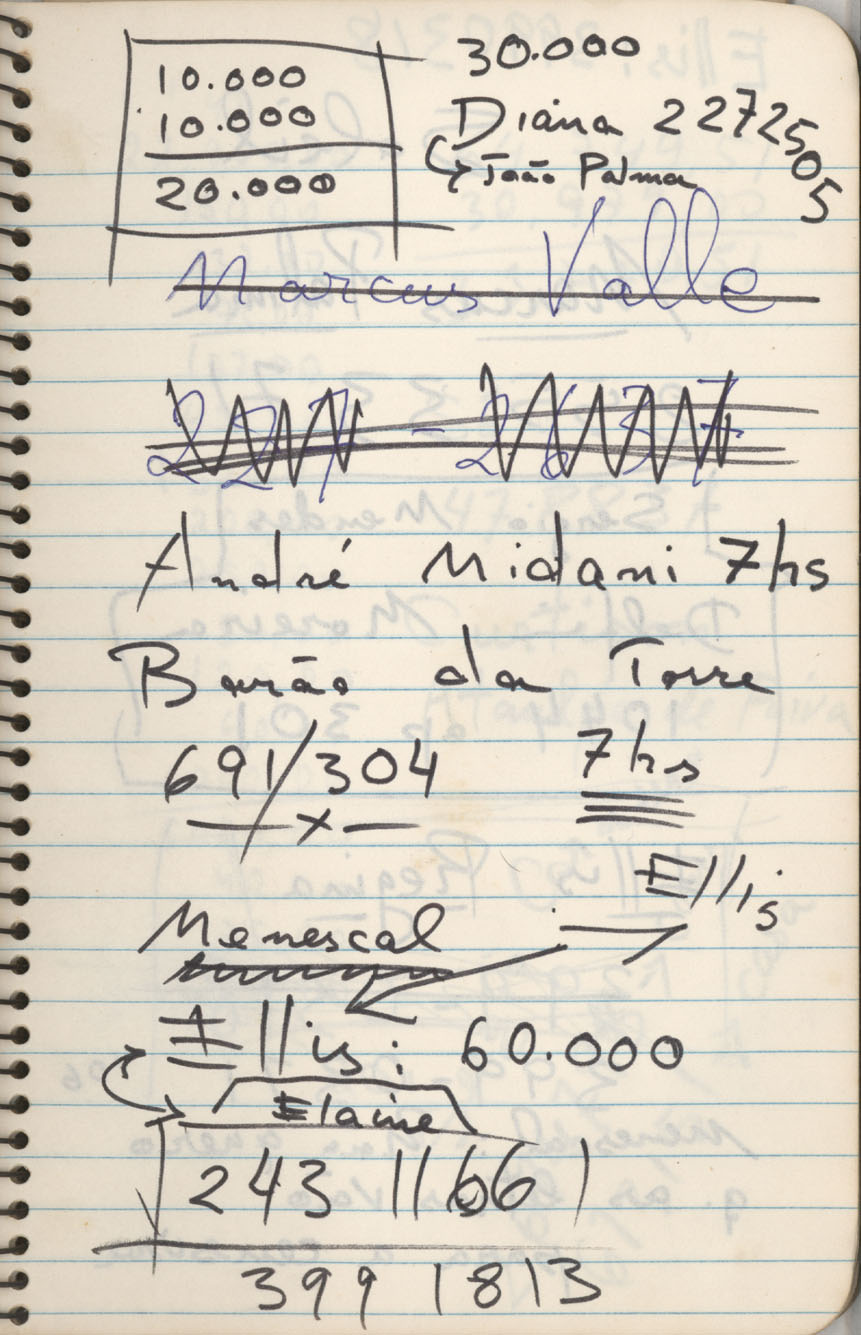 10.000
10.000
20.000
30.000
Diana 2272505
João Palma
Marcus Valle
227 - 2637
André Midani 7hs
Barão da Torre
691/304 7hs
— x —
Ellis
Menescal
Ellis: 60.000
Elaine
243 1166
399 1813